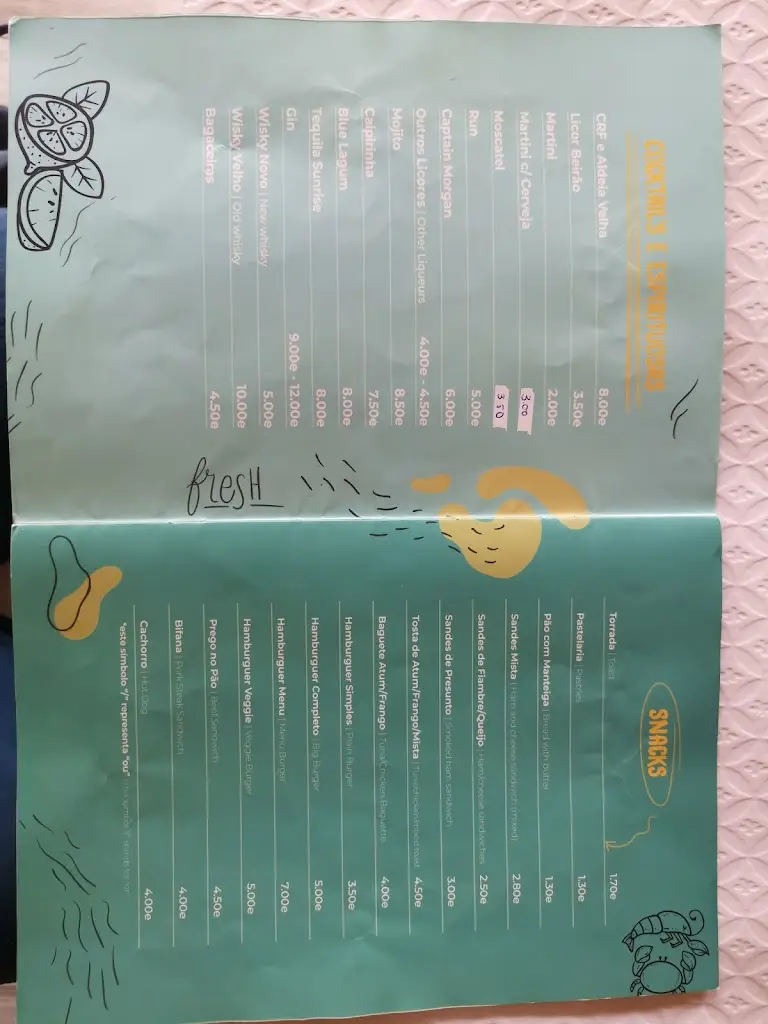 COCKTAILS | ESPIRITUOSAS
CRF e Aldeia Velha 8.00e
Licor Beirão 3.50e
Martini 2.00e
Martini c/ Cerveja 3.00
Moscatel 3.50
Run 5.00e
Captain Morgan 6.00e
Outros Licores | Other Liqueurs 4.00e - 4.50e
Mojito 8.50e
Caipirinha 7.50e
Blue Lagum 8.00e
Tequila Sunrise 8.00e
Gin 9.00e - 12.00e
Wisky Novo | New whisky 5.00e
Wisky Velho | Old whisky 10.00e
Bagaceiras 4.50e
fresH
SNACKS
Torrada | Toast 1.70e
Pastelaria | Pastries 1.30e
Pão com Manteiga | Bread with butter 1.30e
Sandes Mista | Ham and cheese sandwich (mixed) 2.80e
Sandes de Fiambre/Queijo | Ham/cheese sandwiches 2.50e
Sandes de Presunto | Smoked ham sandwich 3.00e
Tosta de Atum/Frango/Mista | Tuna/chicken/mixed toast 4.50e
Baguete Atum/Frango | Tuna/Chicken Baguette 4.00e
Hamburguer Simples | Plain Burger 3.50e
Hamburguer Completo | Big Burger 5.00e
Hamburguer Menu | Menu Burger 7.00e
Hamburguer Veggie | Veggie Burger 5.00e
Prego no Pão | Beef Sandwich 4.50e
Bifana | Pork Steak Sandwich 4.00e
Cachorro | Hot Dog 4.00e
*este símbolo "/" representa "ou"